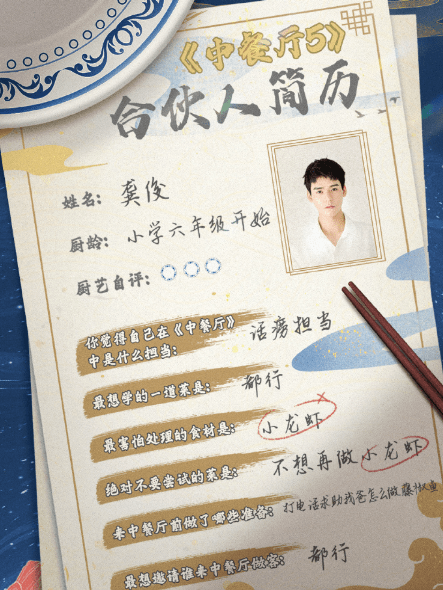 《中餐厅5》
合伙人简历
姓名: 龚俊
厨龄: 小学六年级开始
厨艺自评:
你觉得自己在《中餐厅》
中是什么担当: 话痨担当
最想学的一道菜是: 都行
最害怕处理的食材是: 小龙虾
绝对不要尝试的菜是: 不想再做小龙虾
来中餐厅前做了哪些准备: 打电话求助我爸怎么做藤椒鱼
最想邀请谁来中餐厅做客: 都行